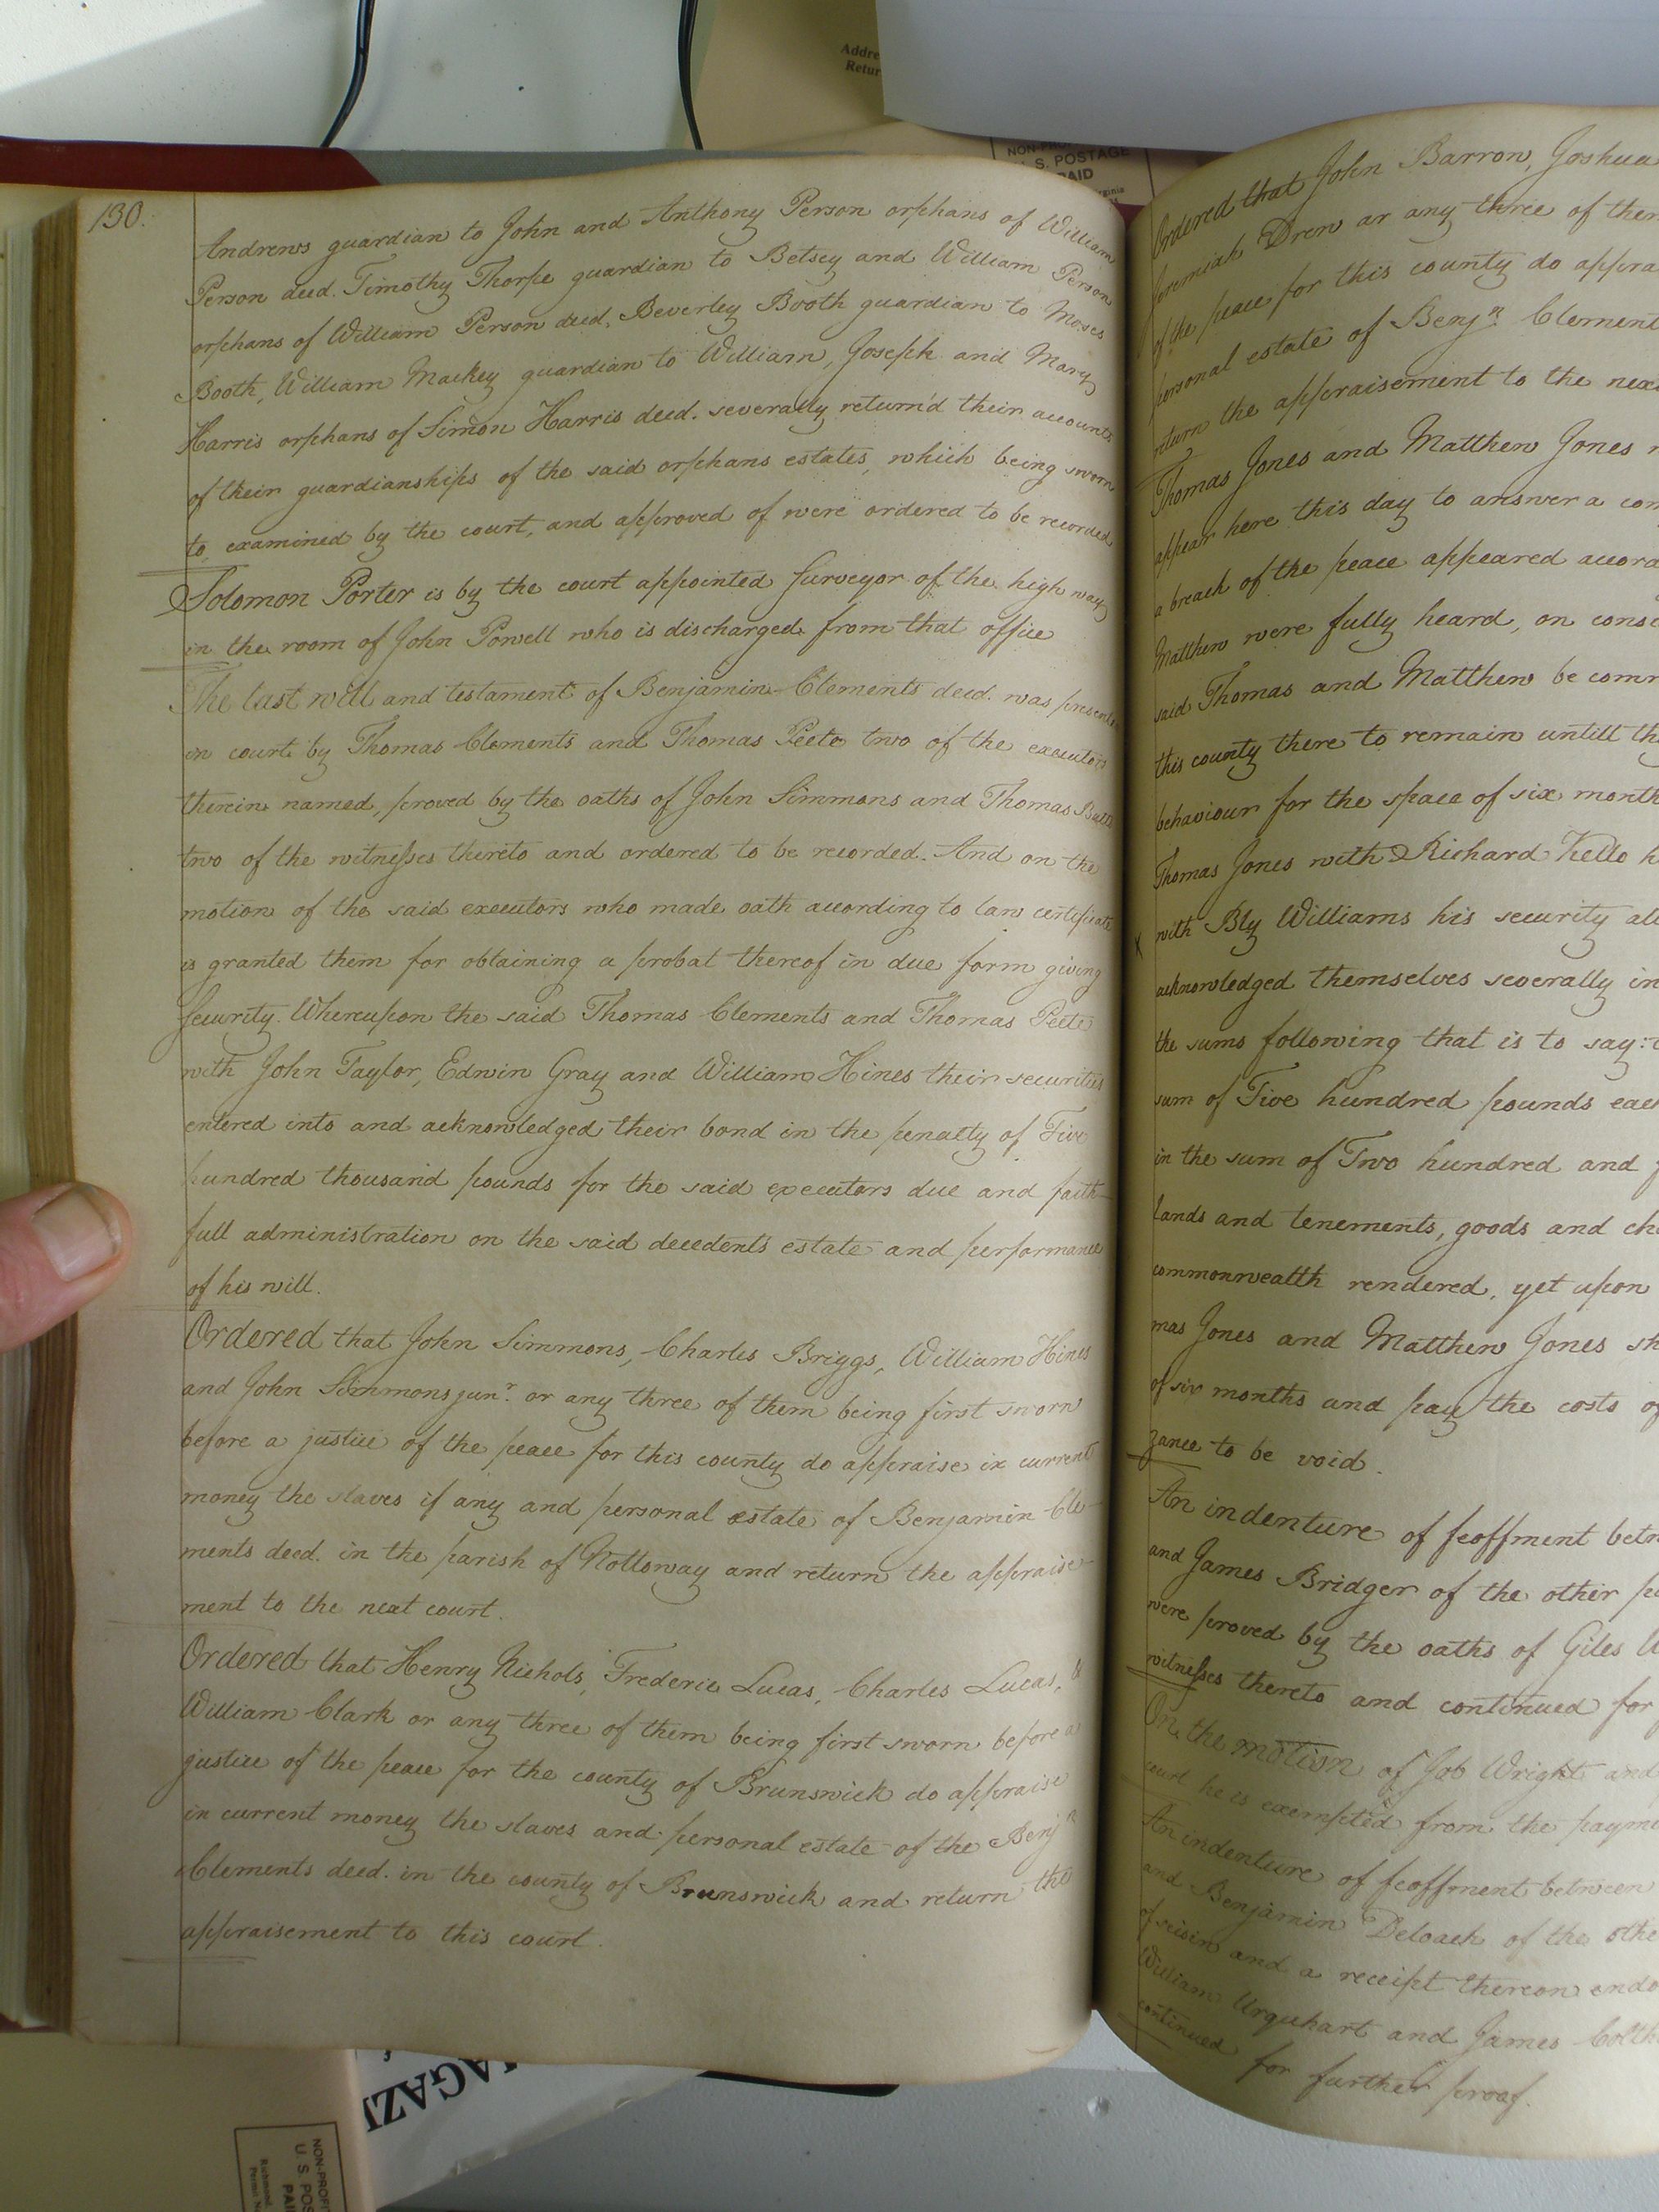 Addre
Retur
NON-PRO
U. S. POSTAGE
PAID
130.
Andrews guardian to John and Anthony Person orphans of William
Person decd. Timothy Thorpe guardian to Betsey and William Person
orphans of William Person decd, Beverley Booth guardian to Moses
Booth, William Mackey guardian to William, Joseph and Mary
Harris orphans of Simon Harris decd. severally return'd their accounts
of their guardianships of the said orphans estates, which being sworn
to, examined by the court, and approved of were ordered to be recorded
Solomon Porter is by the court appointed surveyor of the high way
in the room of John Powell who is discharged from that office
The last will and testament of Benjamin Clements decd. was presented
in court by Thomas Clements and Thomas Peete two of the executors
therein named, proved by the oaths of John Simmons and Thomas Butts
two of the witnesses thereto and ordered to be recorded. And on the
motion of the said executors who made oath according to law certificate
is granted them for obtaining a probat thereof in due form giving
security. Whereupon the said Thomas Clements and Thomas Peete
with John Taylor, Edwin Gray and William Hines their securities
entered into and acknowledged their bond in the penalty of Five
hundred thousand pounds for the said executors due and faith-
full administration on the said decedents estate and performance
of his will.
Ordered that John Simmons, Charles Briggs, William Hines
and John Simmons junr. or any three of them being first sworn
before a justice of the peace for this county do appraise in current
money the slaves if any and personal estate of Benjamin Cle-
ments decd. in the parish of Nottoway and return the appraise-
ment to the next court.
Ordered that Henry Nichols, Frederic Lucas, Charles Lucas, &
William Clark or any three of them being first sworn before a
justice of the peace for the county of Brunswick do appraise
in current money the slaves and personal estate of the Benjn
Clements decd. in the county of Brunswick and return the
appraisement to this court.
Ordered that John Barron, Joshua
Jeremiah Drew or any three of them
of the peace for this county do appra
personal estate of Benjn. Clement
return the appraisement to the nex
Thomas Jones and Matthew Jones
appear here this day to answer a com
a breach of the peace appeared accord
Matthew were fully heard, on consi
said Thomas and Matthew be comm
this county there to remain untill th
behaviour for the space of six month
Thomas Jones with Richard Kello
with Bly Williams his security
x
acknowledged themselves severally in
the sums following that is to say:
sum of Five hundred pounds each
in the sum of Two hundred and
lands and tenements, goods and ch
commonwealth rendered, yet upon
mas Jones and Matthew Jones sh
of six months and pay the costs of
zance to be void.
An indenture of feoffment betw
and James Bridger of the other p
were proved by the oaths of Giles
witnesses thereto and continued for
On the motion of Job Wright and
court he is exempted from the payme
An indenture of feoffment between
and Benjamin Deloach of the othe
of seisin and a receipt thereon endo
William Urquhart and James Colth
continued for further proof.
MAGAZI
NON-PROFI
U. S. POS
PAI
Richmond,
Permit N